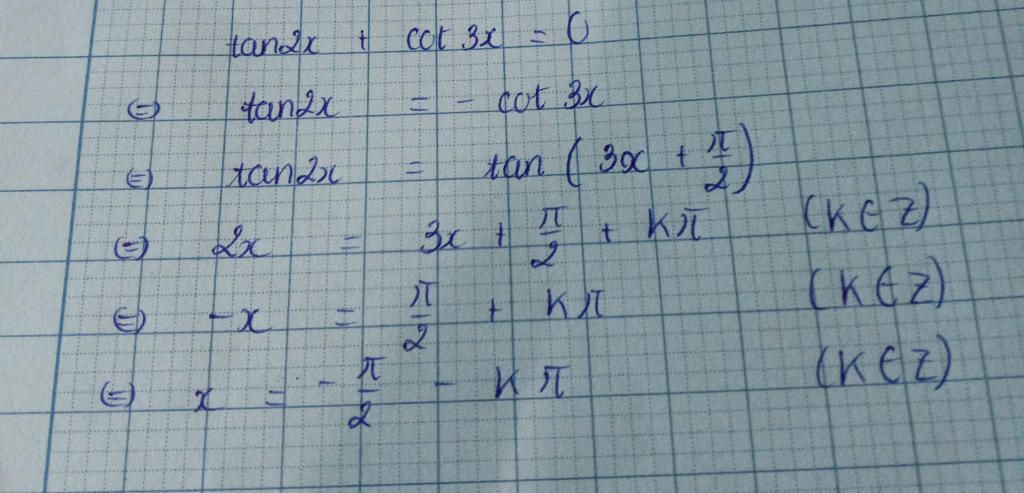 tan2x + cot 3x = 0
⇔ tan2x = - cot 3x
⇔ tan2x = tan ( 3x + π/2 )
⇔ 2x = 3x + π/2 + Kπ (K∈Z)
⇔ -x = π/2 + Kπ (K∈Z)
⇔ x = - π/2 - Kπ (K∈Z)